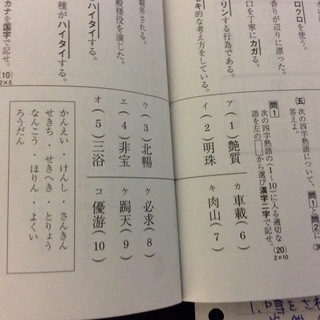 ロクロを使う。
香りが辺りに漂った。
口を丁寧にカガる。
リンする行為である。
キ的な考え方をしている。
殿様役を演じた。
ハイタイする。
種がハイタイする。
カナを国字で記せ。
(10)
2×5
(五) 次の四字熟語について、問1 問2
答えよ。
問1
次の四字熟語の(1〜10)に入る適切な
語を左の□から選び漢字二字で記せ。
(20)
2×10
ア(1)艶質
イ(2)明珠
ウ(3)北暢
エ(4)非宝
オ(5)三浴
カ 車載(6)
キ 肉山(7)
ク 必求(8)
ケ 跼天(9)
コ 優游(10)
かんえい・けんし・さんきん
せきち・せきへき・とりょう
なんこう・ほりん・よくい
ろうだん